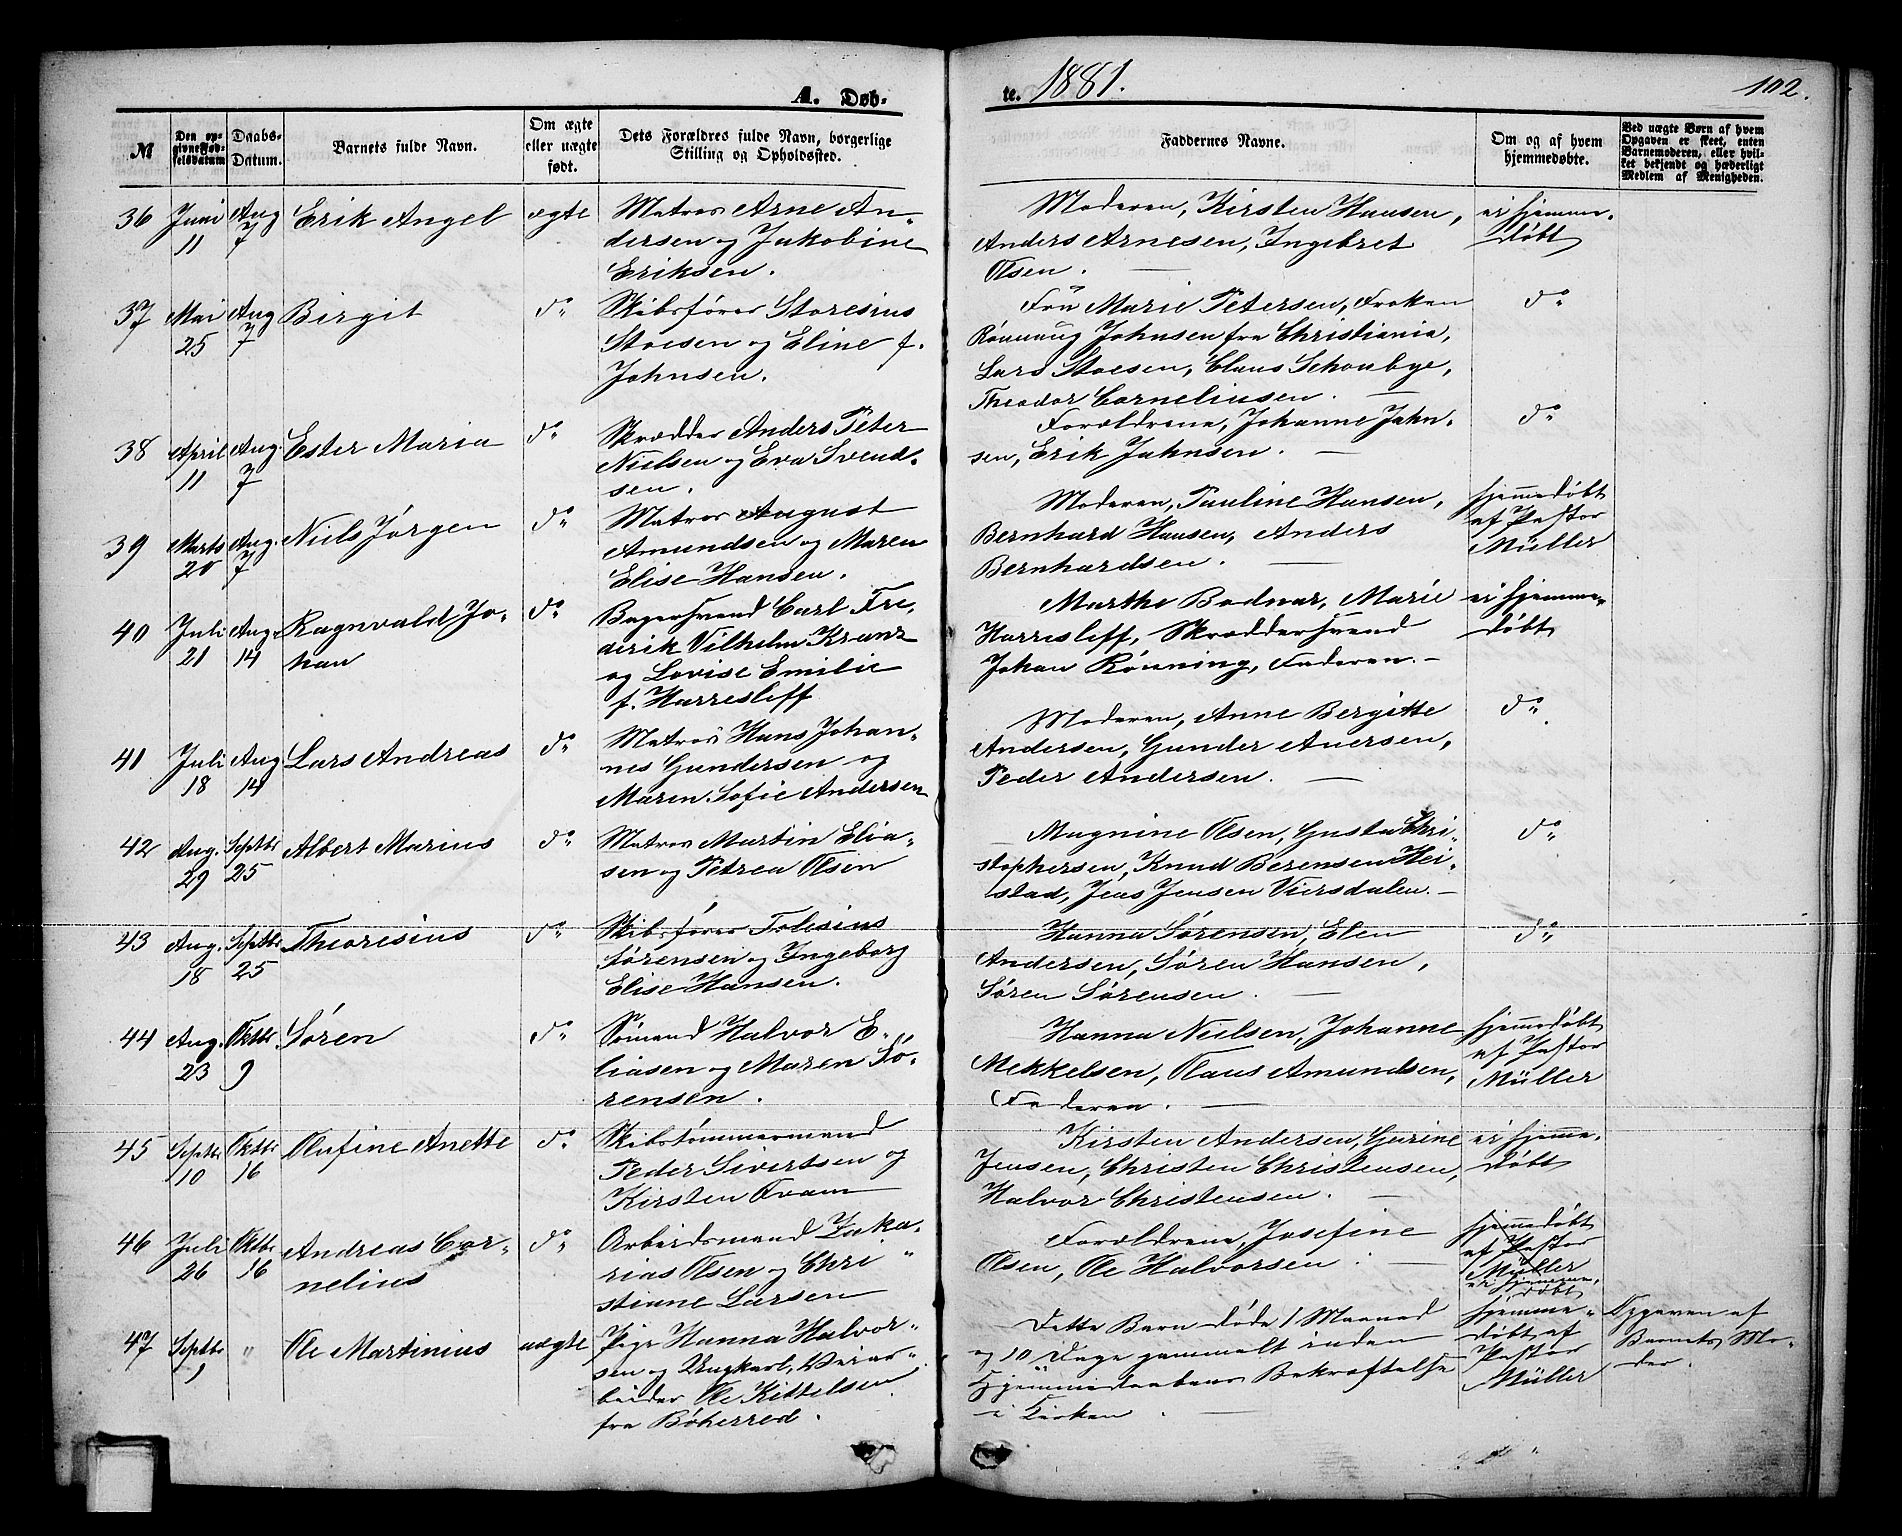 A. Døb-
te. 1881.
102.
№
Den op-
givne Fød-
selsdatum
Daabs-
Datum.
Barnets fulde Navn.
Om ægte
eller uægte
født.
Dets Forældres fulde Navn, borgerlige
Stilling og Opholdssted.
Faddernes Navne.
Om og af hvem
hjemmedøbte.
Ved uægte Børn af hvem
Opgaven er skeet, enten
Barnemoderen, eller hvil-
ket bekjendt og hæderligt
Medlem af Menigheden.
36 Juni 11 Aug 7 Erik Angel ægte
Matros Arne An-
dersen og Jakobine
Eriksen.
Moderen, Kirsten Hansen,
Anders Arnesen, Ingebret
Olsen.
ei hjemme-
døbt
37 Mai 25 Aug 7 Birgit do
Skibsfører Storesius
Stoesen og Eline f.
Johnsen.
Fru Marie Petersen, Frøken
Rønnaug Johnsen fra Christiania,
Lars Stoesen, Claus Schoubye,
Theodor Corneliusen.
do
38 April 11 Aug. 7 Ester Maria do
Skrædder Anders Peter
Nielsen og Eva Svend-
sen.
Forældrene, Johanne John-
sen, Erik Johnsen.
do
39 Marts 20 Aug. 7 Niels Jørgen do
Matros August
Amundsen og Maren
Elise Hansen.
Moderen, Pauline Hansen,
Bernhard Hansen, Anders
Bernhardsen.
hjemmedøbt
af Pastor
Müller
40 Juli 21 Aug. 14 Ragnvald Jo-
han do
Bagersvend Carl Fre-
derik Vilhelm Kranz
og Lovise Emilie
f. Harresleff
Marthe Bodvar, Marie
Harresleff, Skræddersvend
Johan Rönning, Faderen.
ei hjemme-
døbt
41 Juli 18 Aug 14 Lars Andreas do
Matros Hans Johan-
nes Gundersen og
Maren Sofie Andersen
Moderen, Anne Bergitte
Andersen, Gunder Anersen,
Peder Andersen.
do
42 Aug. 29 Septbr 25 Albert Marius do
Matros Martin Elia-
sen og Petrea Olsen
Magnine Olsen, Gusta Chri-
stophersen, Knud Berensen Hei-
stad, Jens Jensen Viersdalen.
do
43 Aug. 18 Septbr 25 Theoresius do
Skibsfører Tolesius
Sørensen og Ingeborg
Elise Hansen.
Hanna Sørensen, Elen
Andersen, Søren Hansen,
Søren Sørensen.
do
44 Aug. 23 Oktbr 9 Søren do
Sømand Halvor E-
liasen og Maren Sø-
rensen.
Hanna Nielsen, Johanne
Mekkelsen, Olaus Amundsen,
Faderen.
hjemmedøbt
af Pastor
Müller
45 Septbr 10 Oktbr 16 Olufine Anette do
Skibstømmermand
Peder Sivertsen og
Kirsten Tvam
Kirsten Andersen, Gurine
Jensen, Christen Christensen,
Halvor Christensen.
ei hjemme-
døbt
46 Juli 26 Oktbr 16 Andreas Cor-
nelius do
Arbeidsmand Zaka-
rias Olsen og Chri-
stiane Larsen
Forældrene, Josefine
Olsen, Ole Halvorsen.
hjemmedøbt
af Pastor
Müller
ei hjemme-
døbt
47 Septbr 9 " Ole Martinius uægte
Pige Hanna Halvor-
sen og Ungkarl,
beider Ole Kittelsen
fra Bøherred.
Dette Barn døde 1 Maaned
og 10 Dage gammelt inden
Hjemmedaabens Bekræftelse
i Kirken.
hjemme-
døbt af
Pastor
Müller
Opgaven af
Barnets Mo-
der.